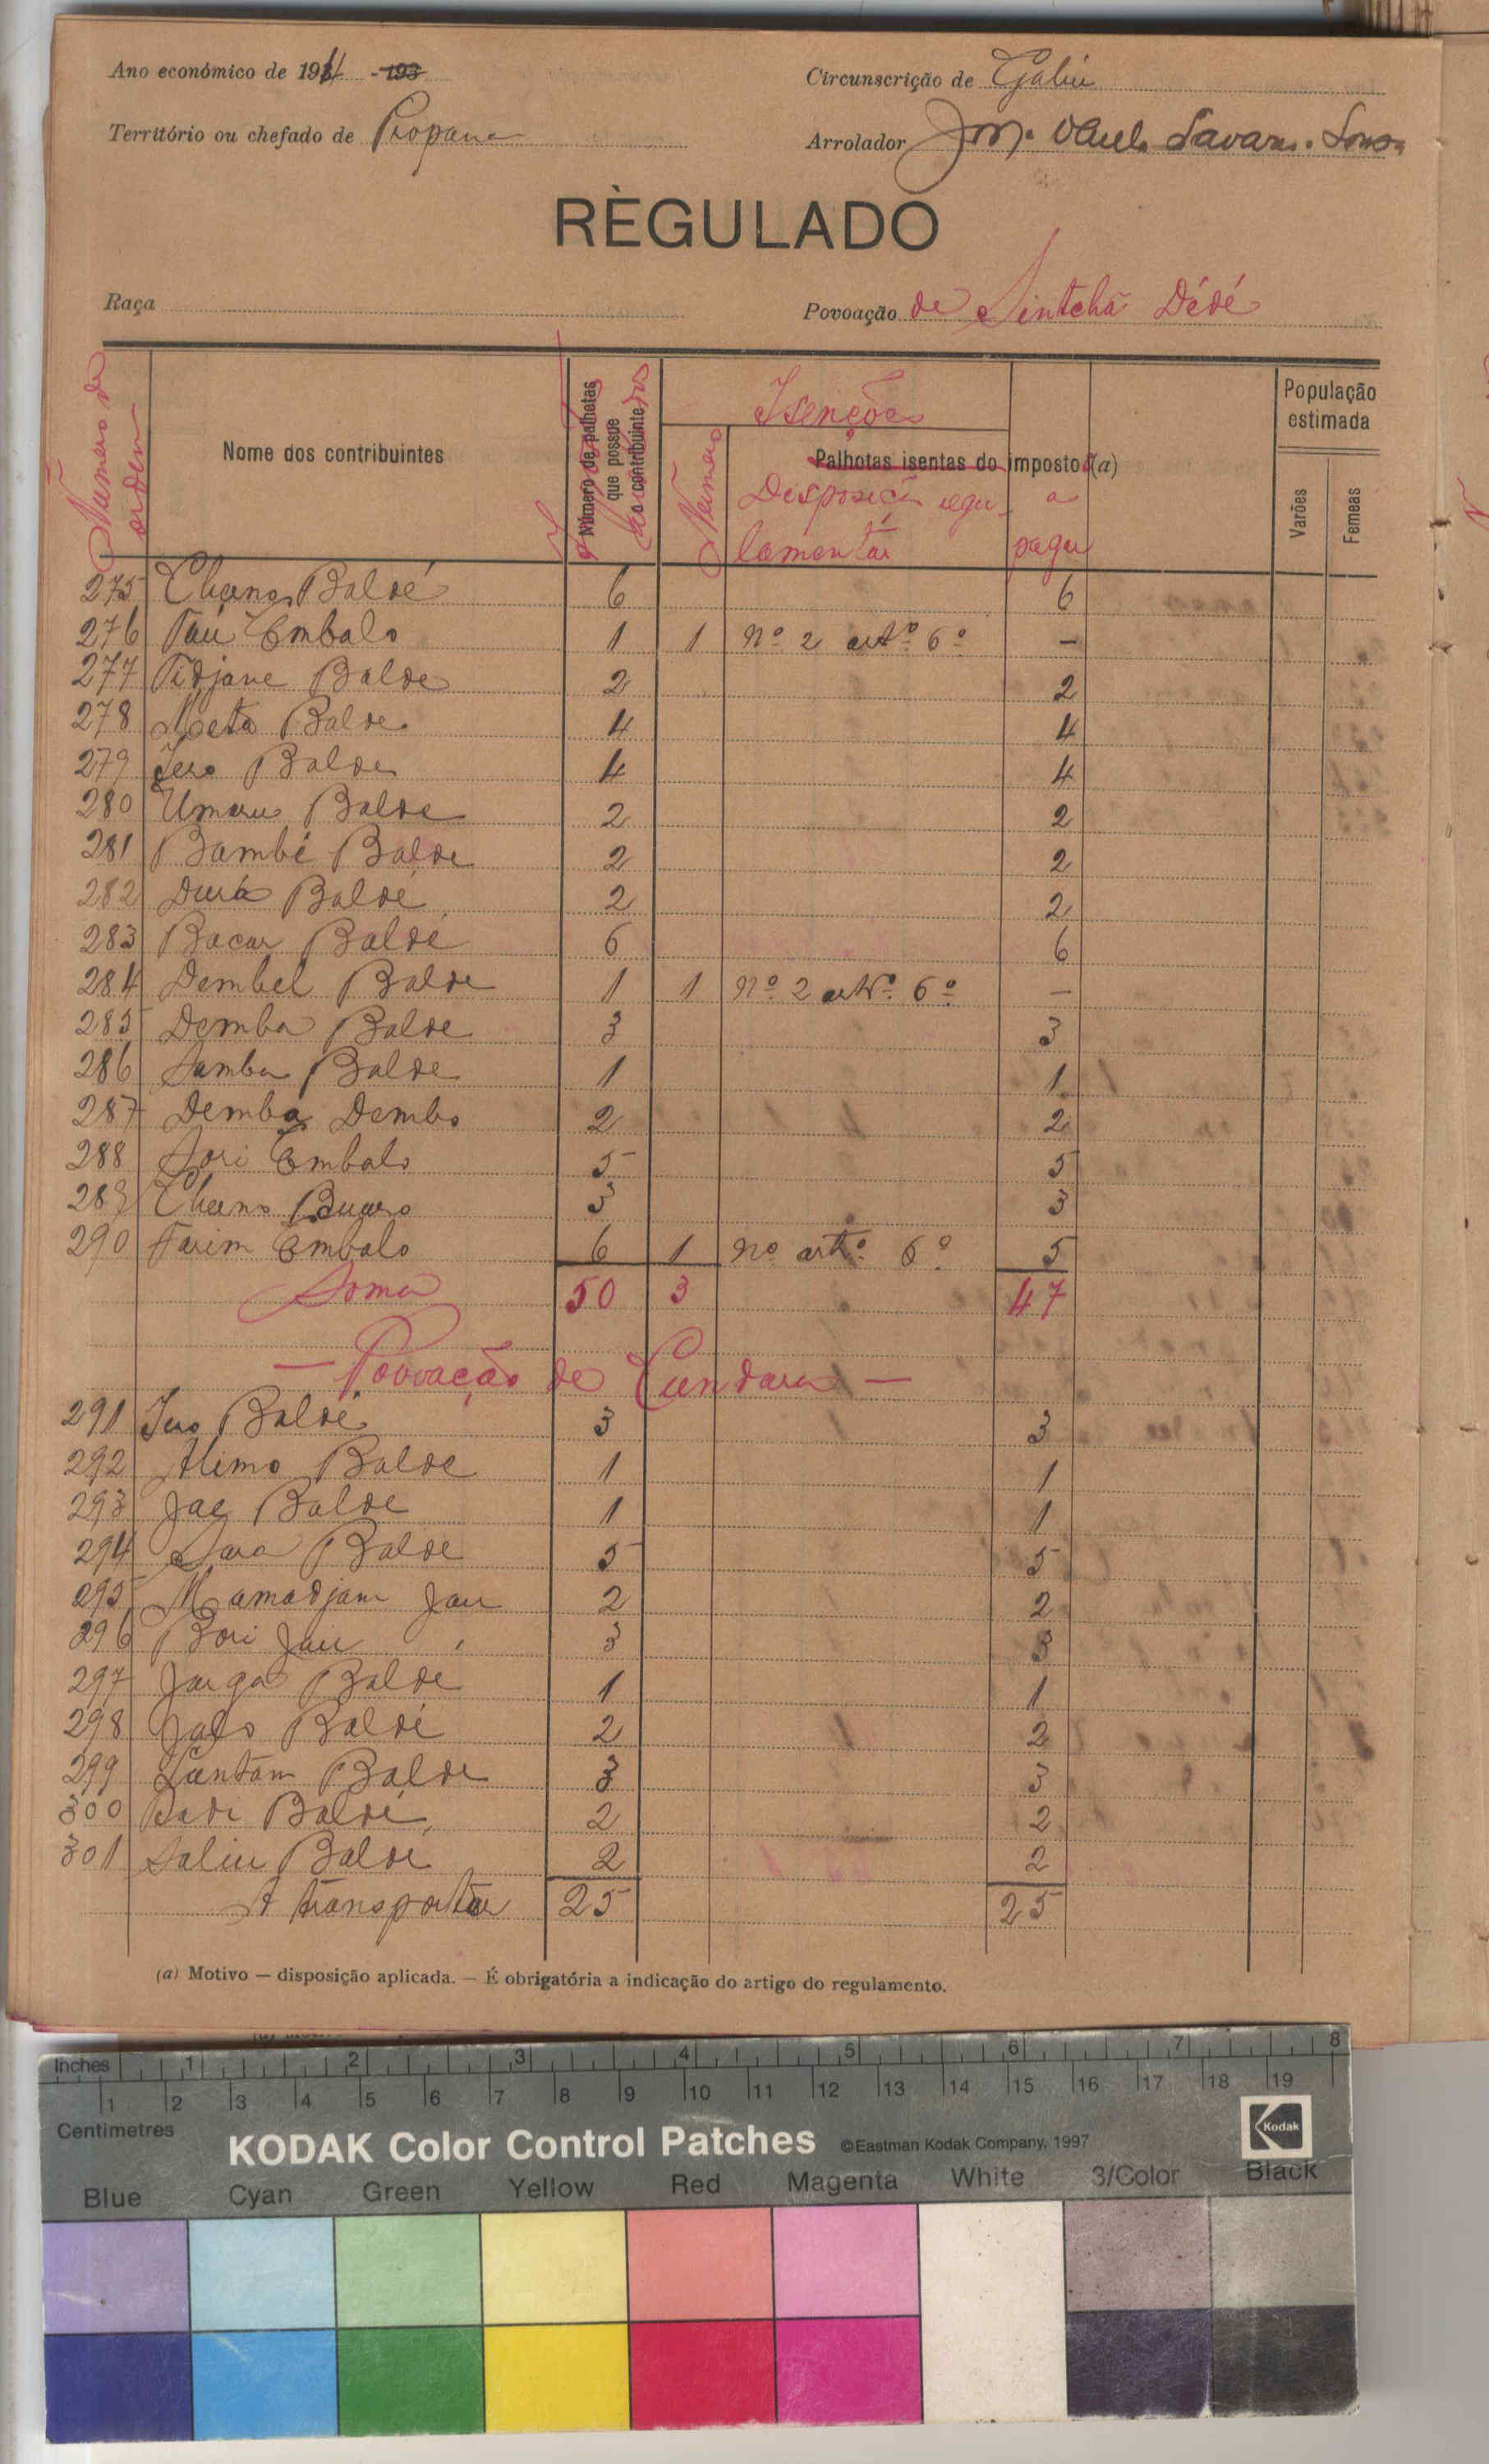 Ano económico de 1941 -193
Circunscrição de Gabú
Território ou chefado de Propana
Arrolador
RÈGULADO
Raça
Povoação de Sintchã Dédé
Numero de ordem
Nome dos contribuintes
Número de palhotas que possue o contribuinte
Isenções
Numero
Palhotas isentas do imposto (a)
Disposição regulamentar
a pagar
População estimada
Varões
Femeas
275 Cherno Baldé 6 6
276 Táu Embalo 1 1 nº 2 artº 6º —
277 Tidjane Balde 2 2
278 Meta Balde 4 4
279 Jero Balde 4 4
280 Umaru Balde 2 2
281 Bambé Balde 2 2
282 Durá Baldé 2 2
283 Bacar Baldé 6 6
284 Dembel Balde 1 1 nº 2 artº 6º —
285 Demba Balde 3 3
286 Samba Balde 1 1
287 Demba Dembo 2 2
288 Sori Embalo 5 5
289 Cherno Buaro 3 3
290 Farim Embalo 6 1 nº artº 6º 5
Soma 50 3 47
— Povoação de Cundara —
291 Jero Baldé 3 3
292 Alimo Balde 1 1
293 Jae Balde 1 1
294 Sara Balde 5 5
295 Mamadjam Jau 2 2
296 Bori Jau 3 3
297 Jarga Baldé 1 1
298 Jalo Baldé 2 2
299 Lantam Balde 3 3
300 Badi Baldé 2 2
301 Saliu Balde 2 2
A transportar 25 25
(a) Motivo — disposição aplicada. — É obrigatória a indicação do artigo do regulamento.
Inches 1 2 3 4 5 6 7 8
1 2 3 4 5 6 7 8 9 10 11 12 13 14 15 16 17 18 19
Centimetres
KODAK Color Control Patches ©Eastman Kodak Company, 1997 Kodak
Blue Cyan Green Yellow Red Magenta White 3/Color Black